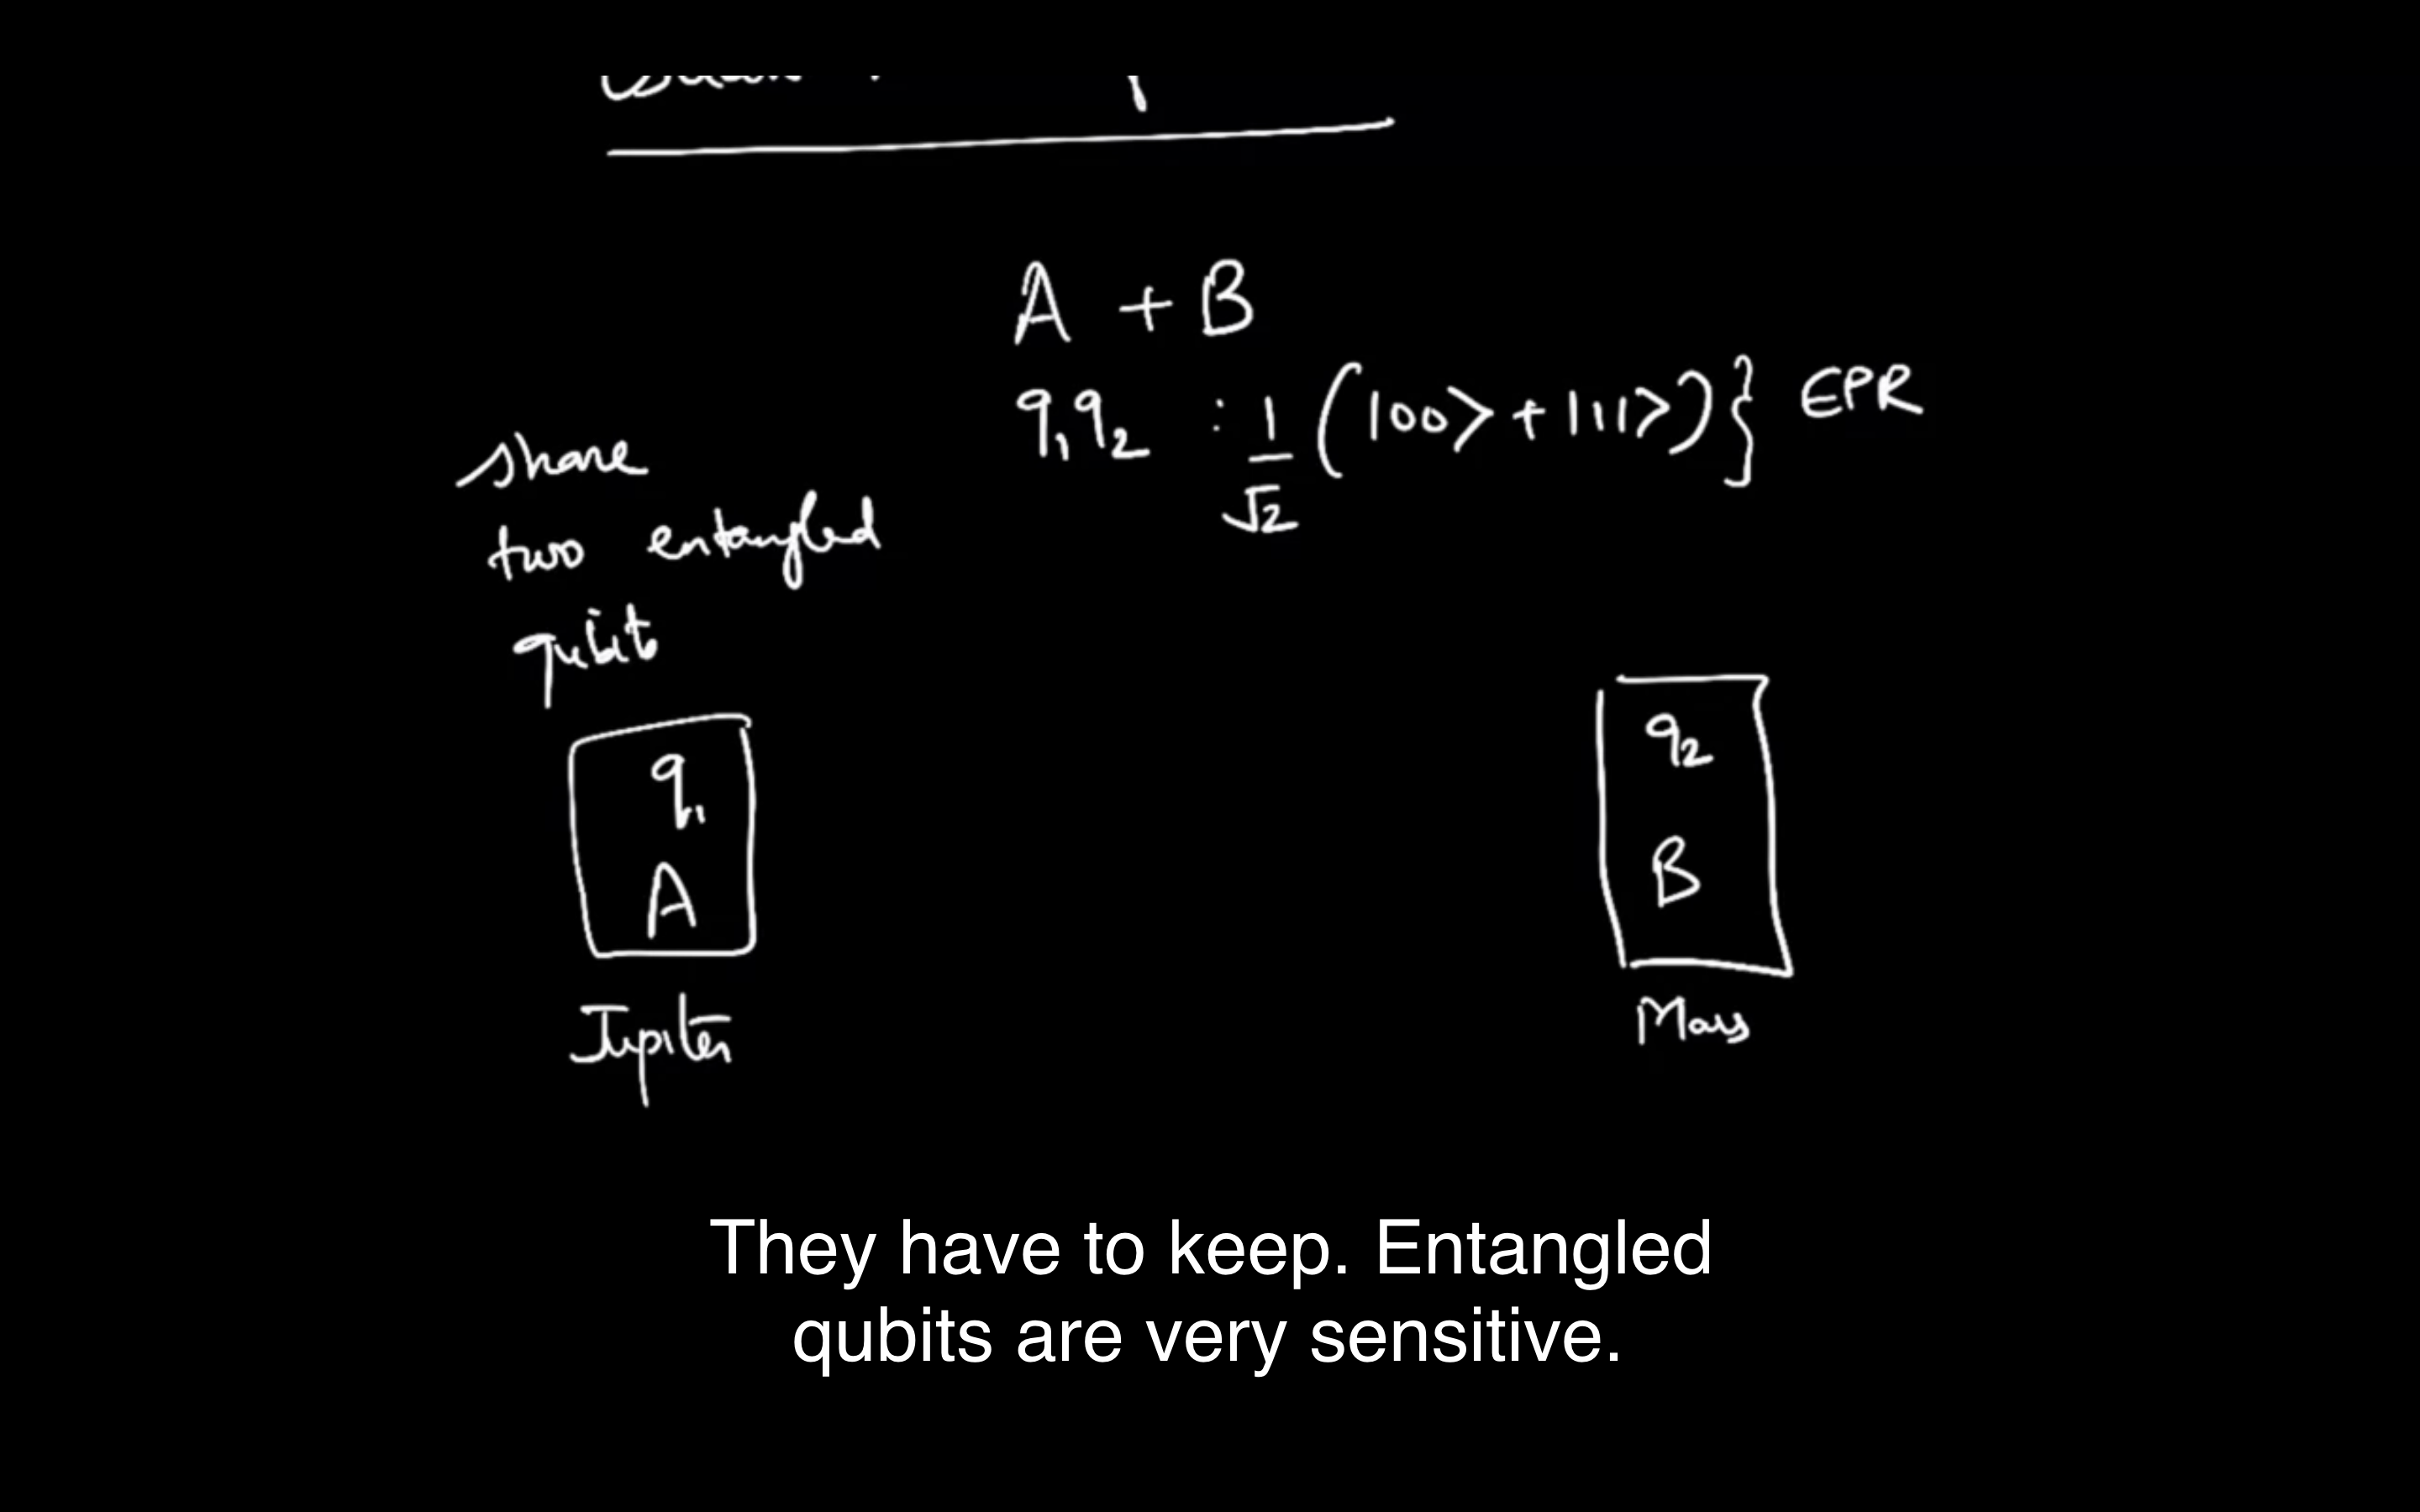 A + B
q₁q₂ : 1/√2 (|00> + |11>) } EPR
share
two entangled
qubit
q₁
A
Jupiter
q₂
B
Mars
They have to keep. Entangled
qubits are very sensitive.